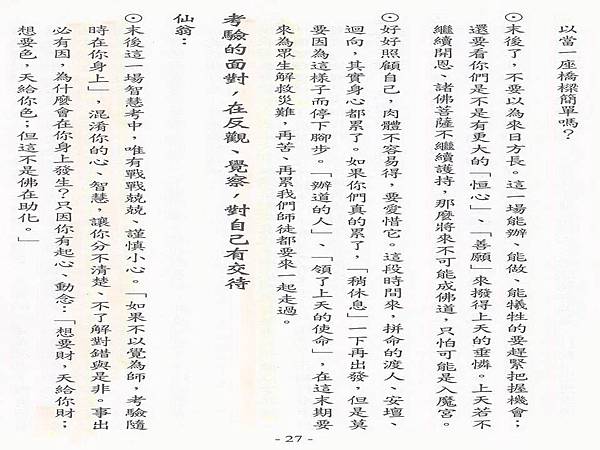 以當一座橋樑簡單嗎？
⊙末後了，不要以為來日方長。這一場能辦、能做、能犧牲的要趕緊把握機會：
還要看你們是不是有更大的「恒心」、「善願」來撥得上天的垂憐。上天若不
繼續開恩、諸佛菩薩不繼續護持，那麼將來不可能成佛道，只怕可能是入魔宮。
⊙好好照顧自己，肉體不容易得，要愛惜它。這段時間來，拼命的渡人、安壇、
迴向，其實身心都累了。如果你們真的累了，「稍休息」一下再出發，但是莫
要因為這樣子而停下腳步。「辦道的人」、「領了上天的使命」，在這末期要
來為眾生解救災難，再苦、再累我們師徒都要來一起走過。
考驗的面對，在反觀、覺察，對自己有交待
仙翁：
⊙末後這一場智慧考中，唯有戰戰兢兢、謹慎小心。「如果不以覺為師，考驗隨
時在你身上」，混淆你的心、智慧，讓你分不清楚、不了解對錯與是非。事出
必有因，為什麼會在你身上發生？只因你有起心、動念：「想要財，天給你財：
想要色，天給你色：但這不是佛在助化。」
- 27 -